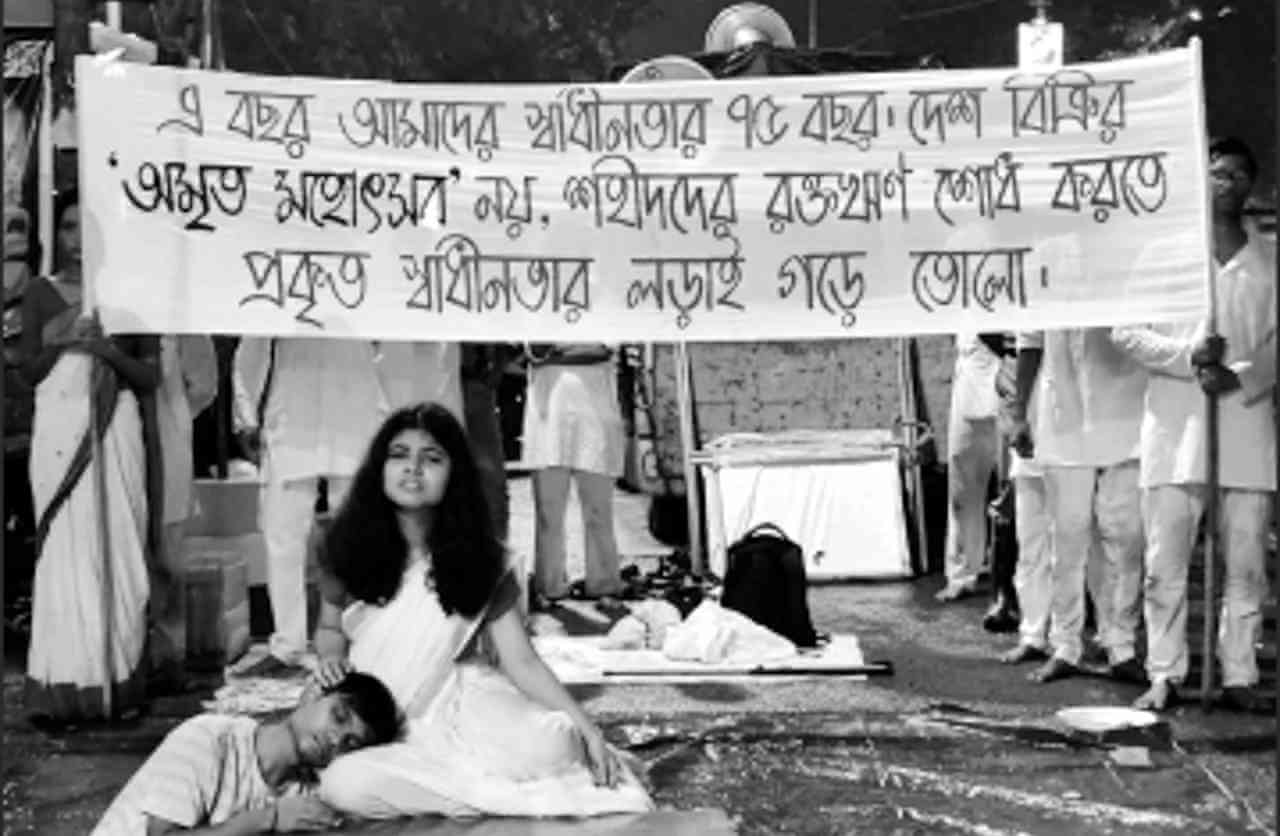 এ বছর আমাদের স্বাধীনতার ৭৫ বছর। দেশ বিক্রির
'অমৃত মহোৎসব' নয়, শহীদদের রক্তঋণ শোধ করতে
প্রকৃত স্বাধীনতার লড়াই গড়ে তোলো।